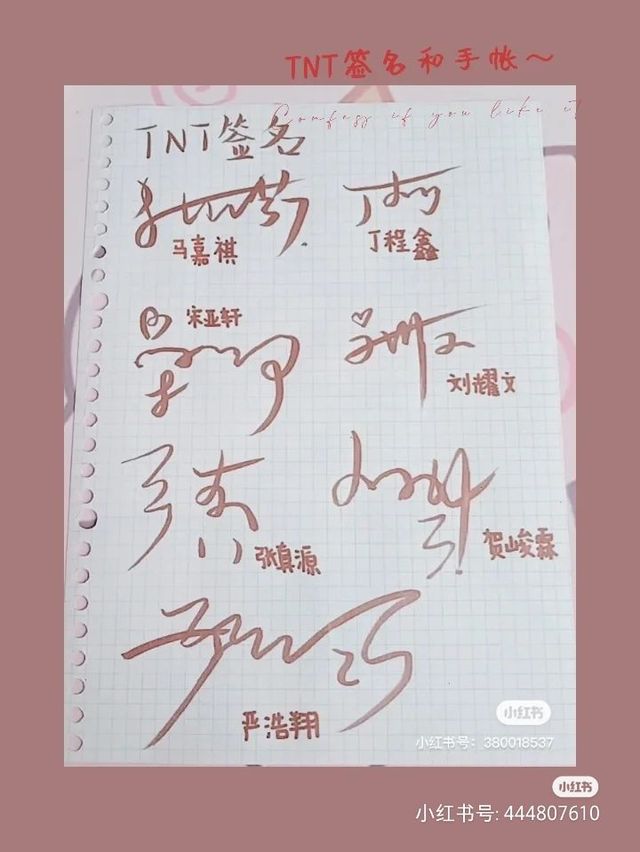 TNT签名和手帐～
Confess if you like it
TNT签名
马嘉祺
丁程鑫
宋亚轩
刘耀文
张真源
贺峻霖
严浩翔
小红书
小红书号：380018537
小红书
小红书号: 444807610